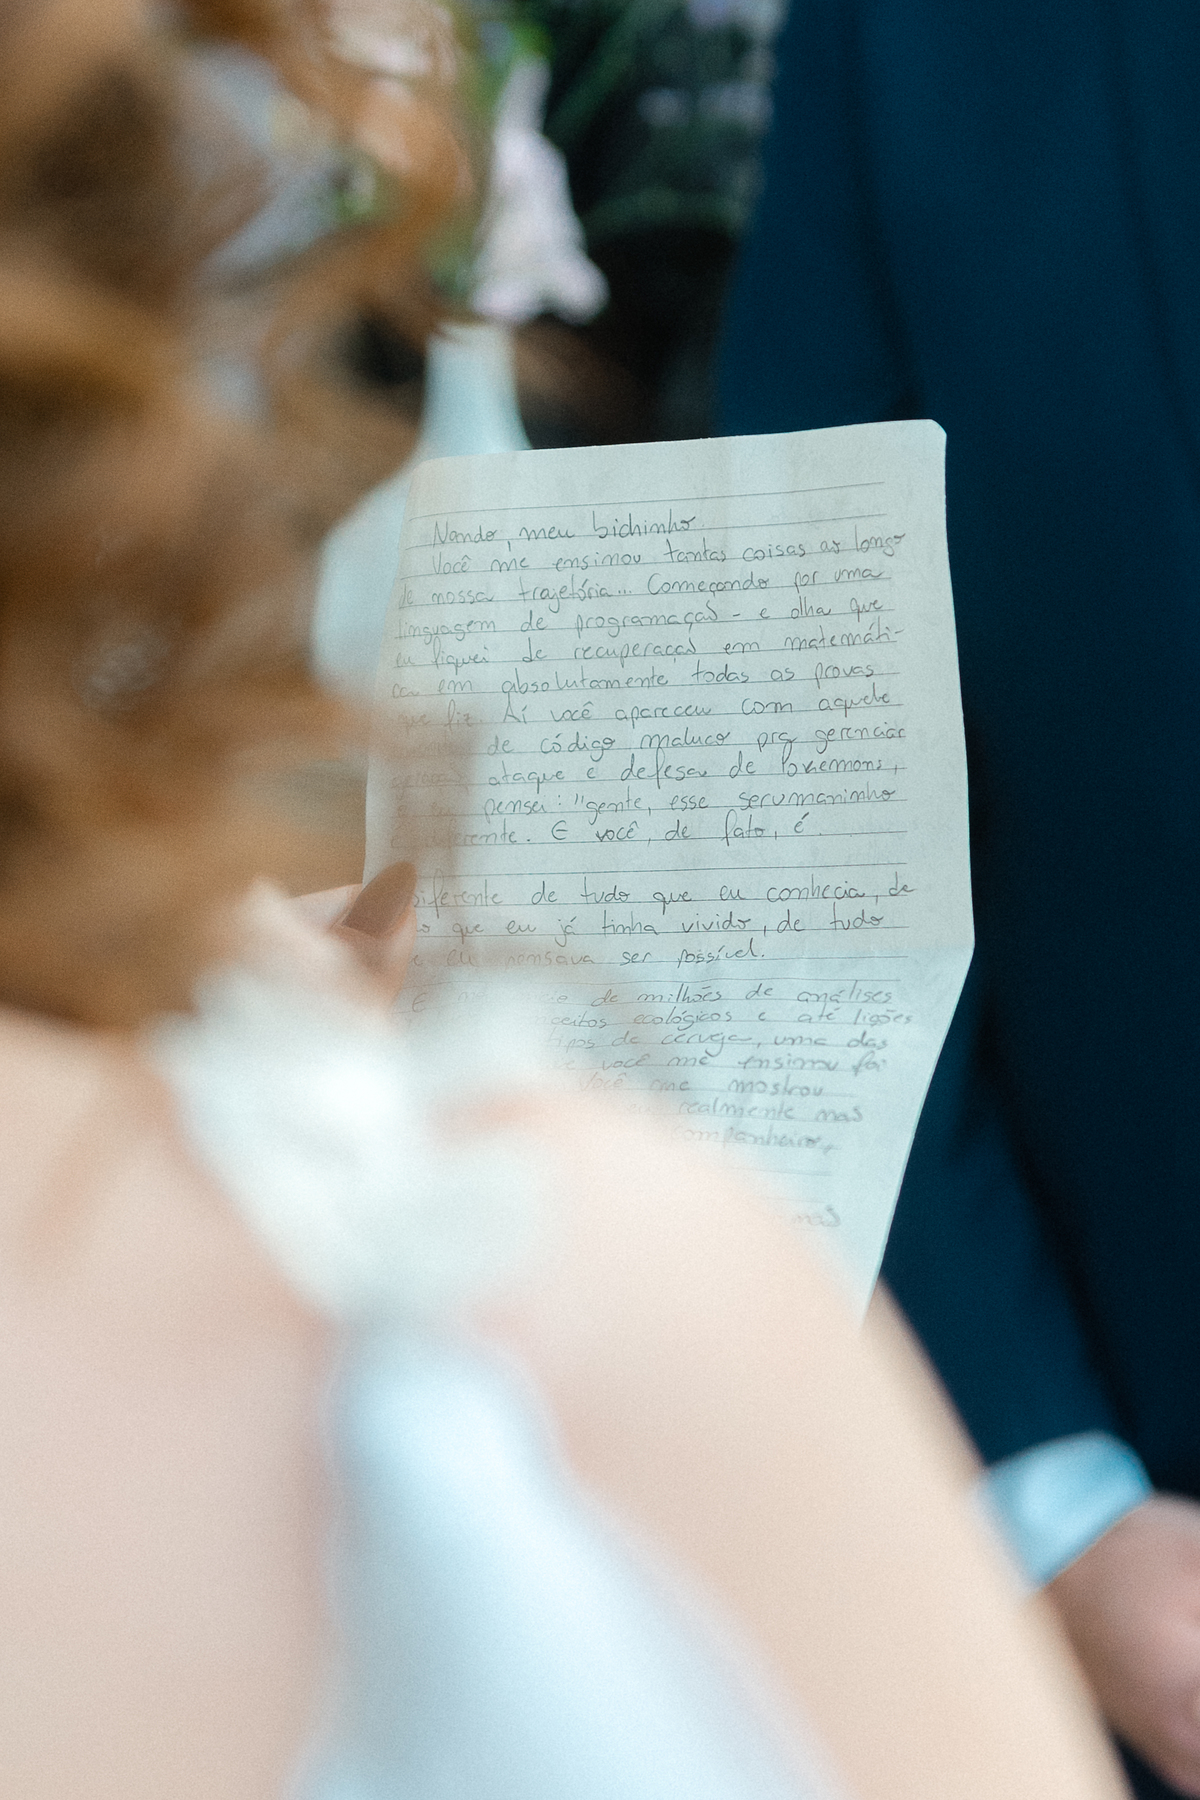 Nando, meu bichinho
Você me ensinou tantas coisas ao longo
de nossa trajetória... Começando por uma
linguagem de programação - e olha que
eu fiquei de recuperação em matemáti-
ca em absolutamente todas as provas
que fiz. Aí você apareceu com aquele
de código maluco pra gerenciar
ataque e defesa de Pokemons,
e eu pensei: "gente, esse serumaninho
é diferente. E você, de fato, é.
Diferente de tudo que eu conhecia, de
que eu já tinha vivido, de tudo
eu pensava ser possível.
E de milhões de análises
ecológicos e até lições
tipos de cerveja, uma das
você me ensinou foi
Você me mostrou
realmente mas
companheiro,
mas